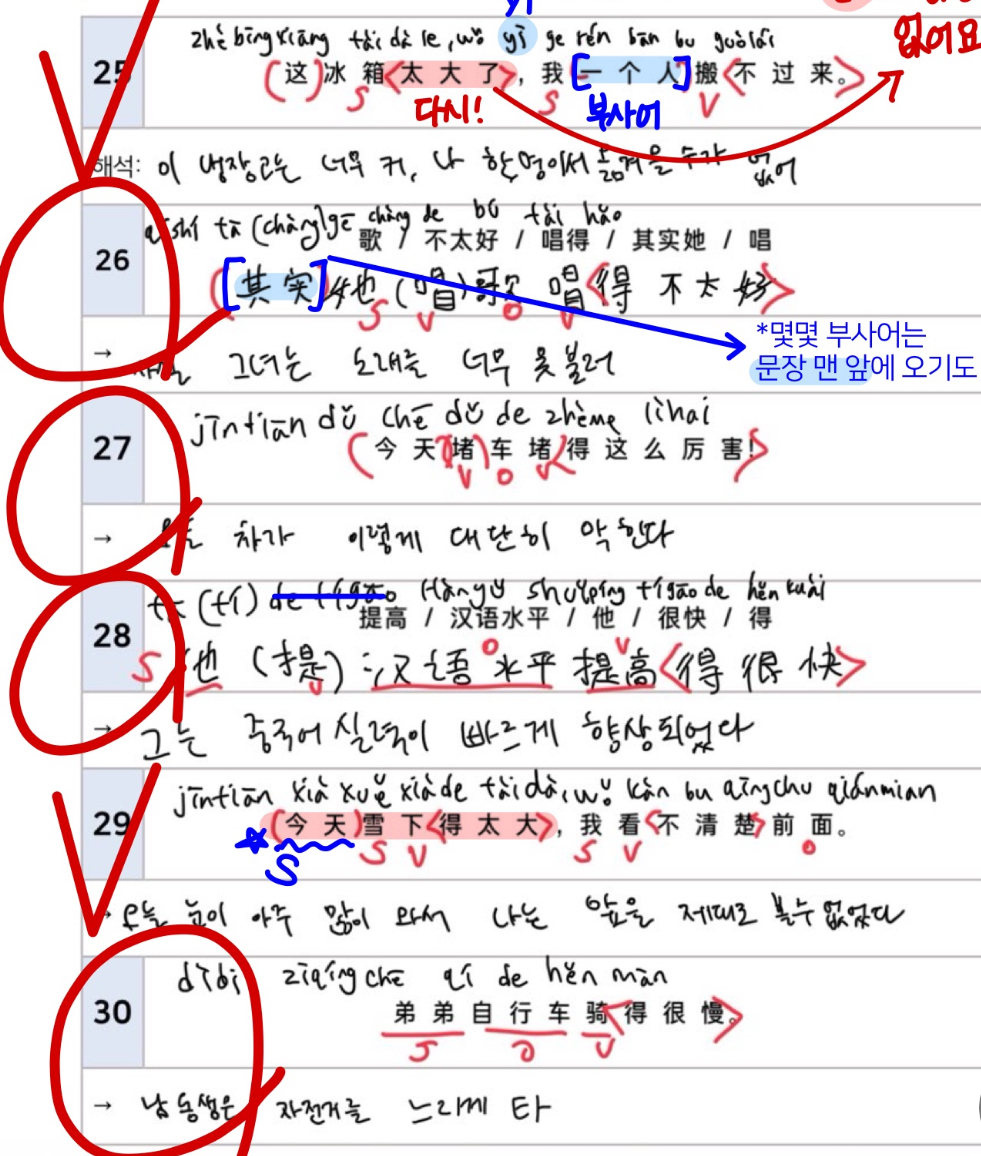 yī
없어요
zhè bīngxiāng tài dà le, wǒ yī ge rén bān bu guòlái
25
(这)冰箱<太大了>, 我[一个人]搬<不过来。>
S S V
다시! 부사어
해석: 이 냉장고는 너무 커, 나 한명이서 옮겨올 수가 없어
shí tā (chàng)gē chàng de bú tài hǎo
26
歌 / 不太好 / 唱得 / 其实她 / 唱
([其实]她(唱)歌 唱<得 不太好>
S V O V
*몇몇 부사어는
문장 맨 앞에 오기도
→ 그녀는 노래를 너무 못불러
jīntiān dǔ chē dǔ de zhème lìhai
27
(今天(堵)车堵<得这么厉害!>
V O V
→ 차가 이렇게 대단히 막힌다
tā (tí) de tígāo Hànyǔ shuǐpíng tígāo de hěn kuài
28
提高 / 汉语水平 / 他 / 很快 / 得
S 他 (提) 汉语水平 提高<得 很 快>
V O V
→ 그는 중국어 실력이 빠르게 향상되었다
jīntiān xià xuě xiàde tài dà, wǒ kàn bu qīngchu qiánmian
29
(今天)雪下<得太大>, 我看<不清楚>前面。
S S V S V O
→ 오늘 눈이 아주 많이 와서 나는 앞을 제대로 볼수 없었다
dìdi zìqíngchē qí de hěn màn
30
弟弟自行车骑<得很慢。>
S O V
→ 남동생은 자전거를 느리게 타